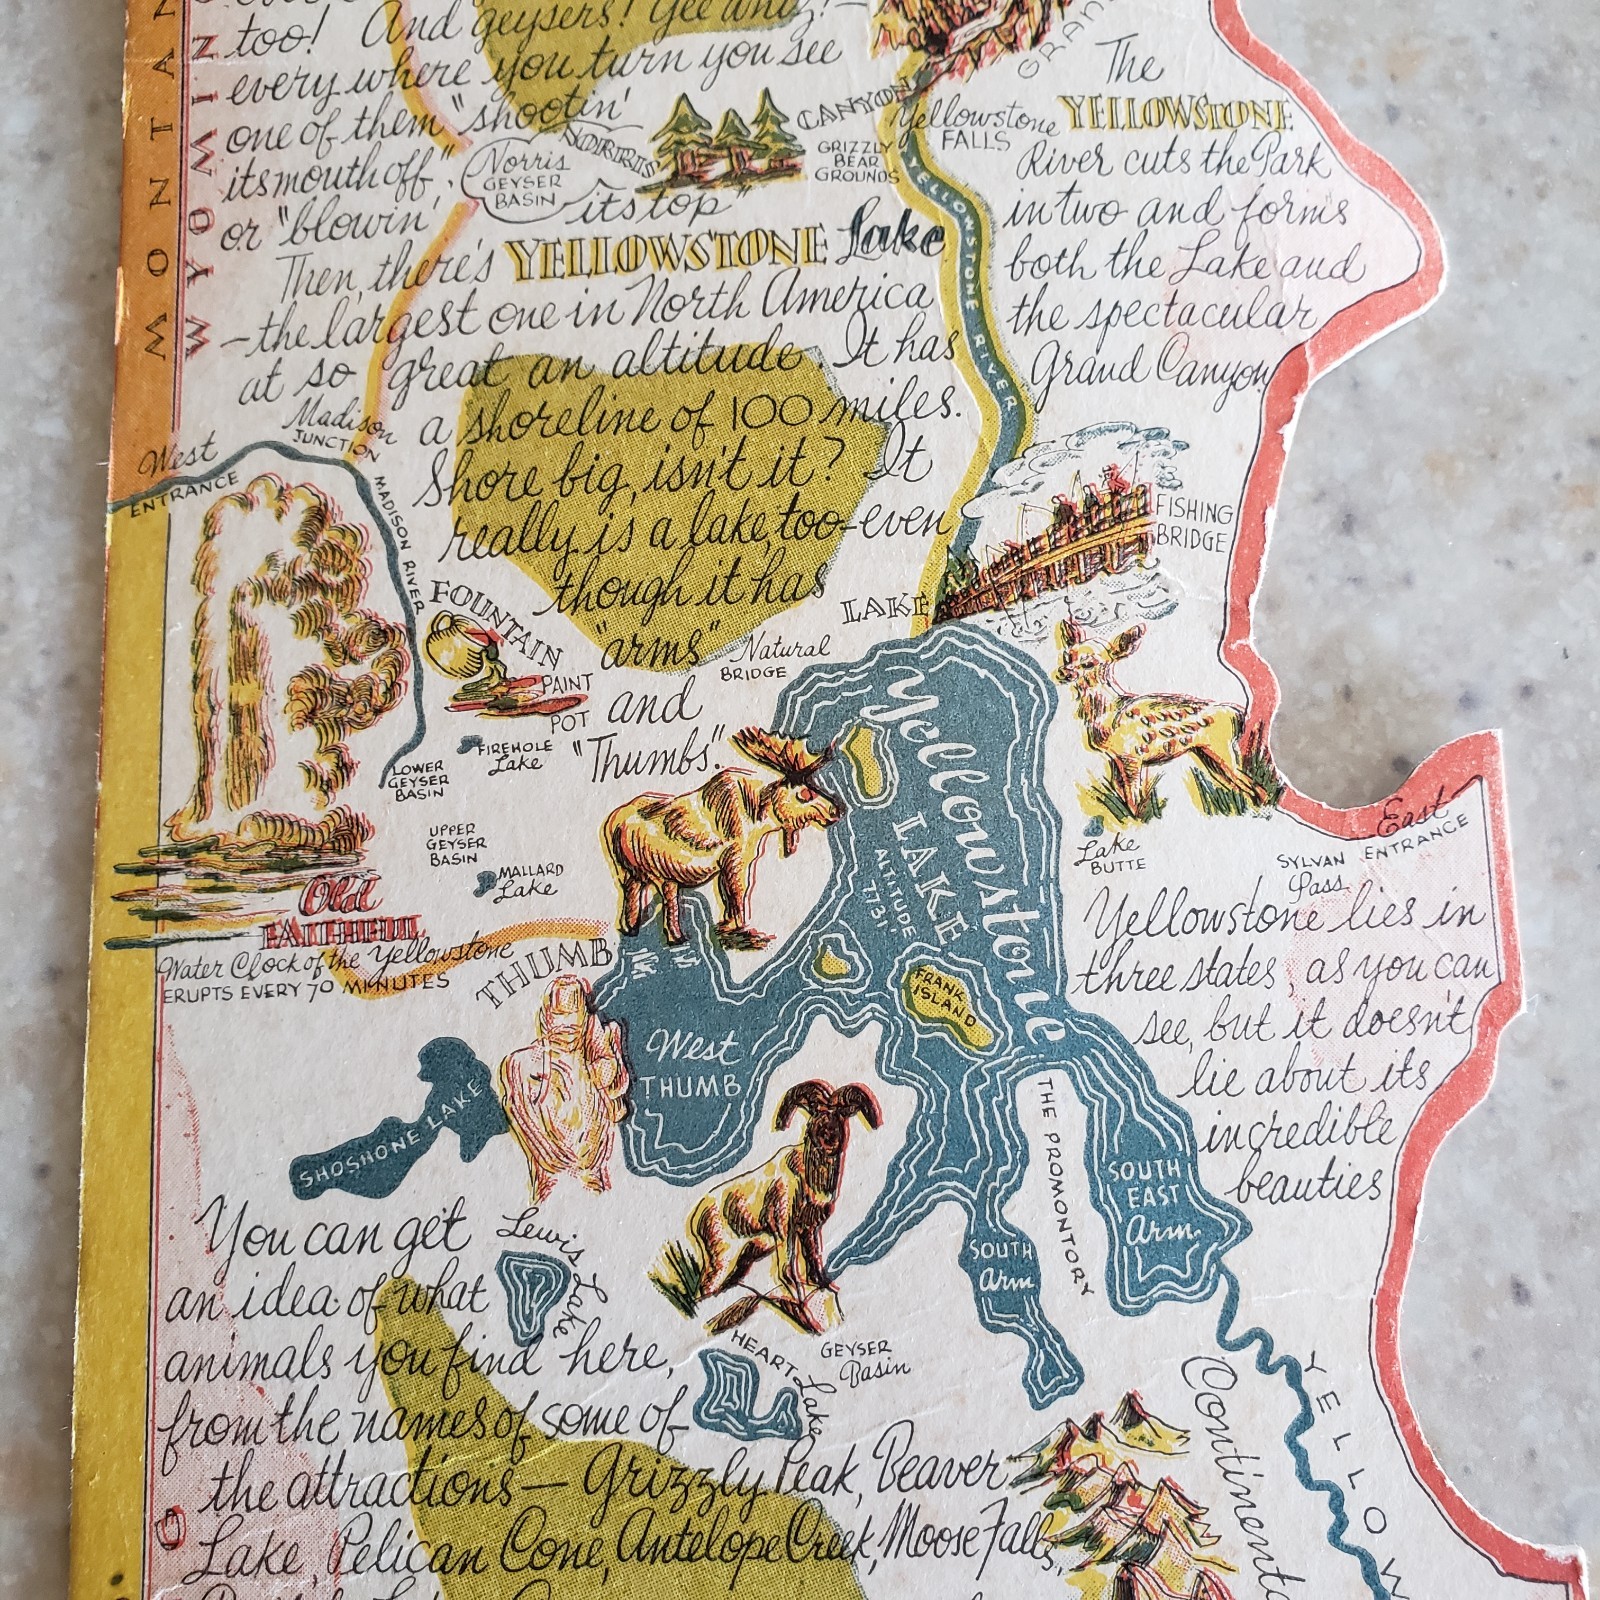 too! And geysers! Gee whiz!—
every where you turn you see
one of them "shootin'
its mouth off",
or "blowin'
its top"
MONTAN
WYOMING
NORRIS
Norris
GEYSER
BASIN
CANYON
GRIZZLY
BEAR
GROUNDS
Yellowstone
FALLS
GRAN
The
YELLOWSTONE
River cuts the Park
in two and forms
both the Lake and
the spectacular
Grand Canyon
YELLOWSTONE RIVER
Then, there's YELLOWSTONE Lake
—the largest one in North America
at so great an altitude. It has
a shoreline of 100 miles.
Shore big, isn't it? It
really is a lake, too—even
though it has
"arms"
and
"Thumbs".
Madison
JUNCTION
West
ENTRANCE
MADISON RIVER
FISHING
BRIDGE
LAKE
Natural
BRIDGE
FOUNTAIN
PAINT
POT
FIREHOLE
Lake
LOWER
GEYSER
BASIN
UPPER
GEYSER
BASIN
MALLARD
Lake
Old
FAITHFUL
Water Clock of the Yellowstone
ERUPTS EVERY 70 MINUTES
Yellowstone
LAKE
ALTITUDE
7731'
FRANK
ISLAND
Lake
BUTTE
East
ENTRANCE
SYLVAN
Pass
Yellowstone lies in
three states, as you can
see, but it doesn't
lie about its
incredible
beauties
THUMB
West
THUMB
SHOSHONE LAKE
THE PROMONTORY
SOUTH
EAST
Arm
SOUTH
Arm
Lewis Lake
HEART Lake
GEYSER
Basin
You can get
an idea of what
animals you find here,
from the names of some of
the attractions — Grizzly Peak, Beaver
Lake, Pelican Cone, Antelope Creek, Moose Falls,
Continenta
YELLOW